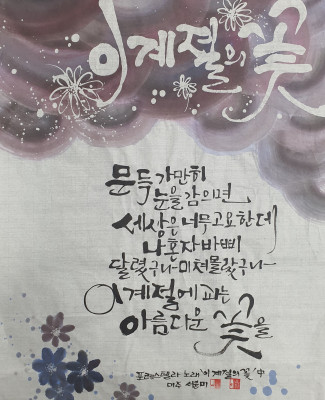 이계절의 꽃
문득 가만히
눈을 감으면
세상은 너무 고요한데
나 혼자 바삐
달렸구나 미쳐 몰랐구나
이 계절에 피는
아름다운 꽃을
포레스텔라 노래 '이 계절의 꽃' 中